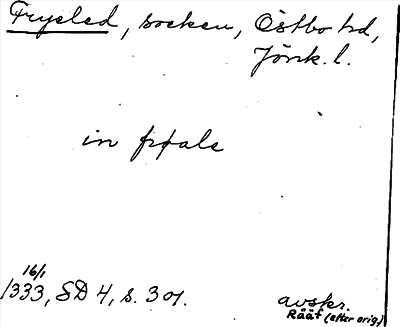 Fryeled, socken, Östbo hd,
Jönk. l.
in fryale
16/1
1333, SD 4, s. 301.
avskr.
Rääf (efter orig.)